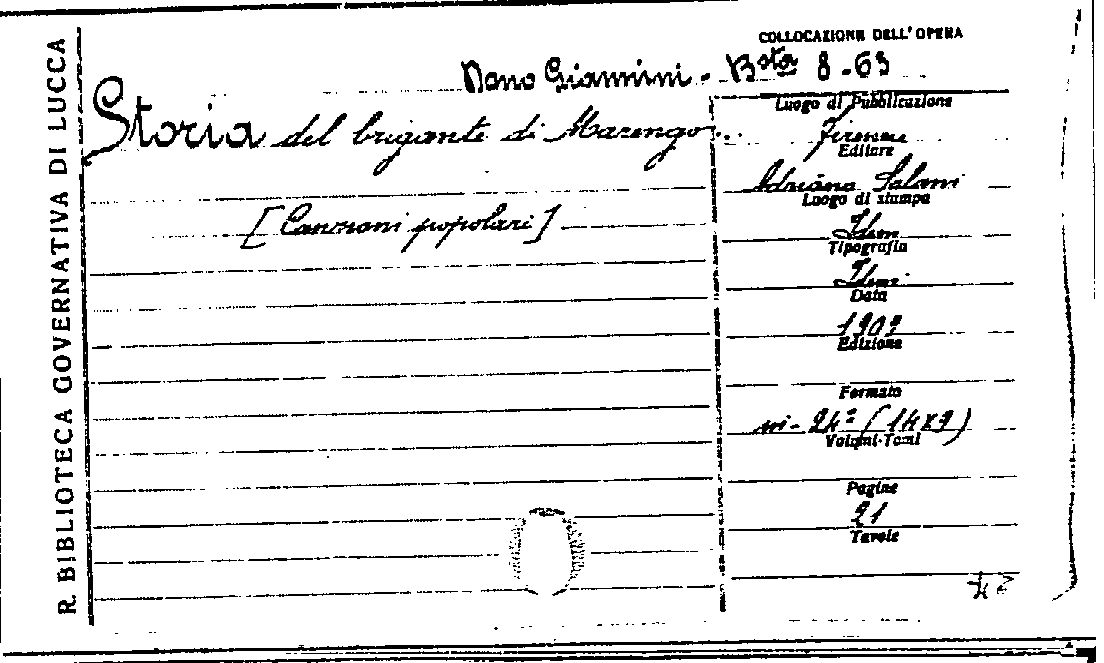 R. BIBLIOTECA GOVERNATIVA DI LUCCA
COLLOCAZIONE DELL' OPERA
Dono Giannini - Bsta 8-63
Storia del brigante di Marengo...
[Canzoni popolari]
Luogo di Pubblicazione
Firenze
Editore
Adriano Salani
Luogo di stampa
Idem
Tipografia
Idem
Data
1909
Edizione
Formato
in-24º (14x9)
Volumi-Tomi
Pagine
21
Tavole